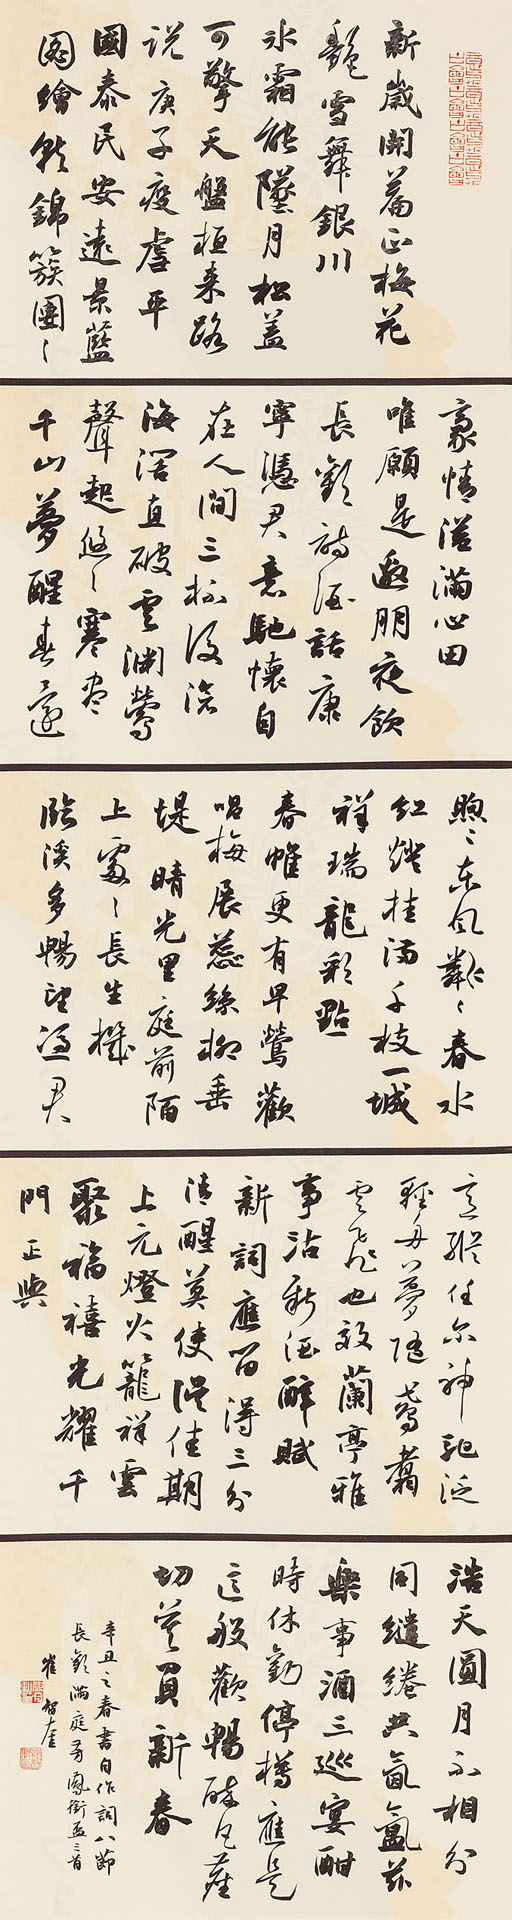 新歲開篇正梅花
艷雪舞銀川
冰霜能墜月松蓋
可擎天盤桓來路
說庚子疫虐平
國泰民安遠景藍
圖繪就錦簇團〻
豪情溢滿心田
唯願是邀朋夜飲
長歌詩酒話康
寧憑君意馳懷自
在人間三杯後滄
海濶直破雲淵鶯
聲起悠〻寒盡
千山夢醒春還
煦〻東風粼〻春水
紅燈挂滿千枝一城
祥瑞龍彩點
春帷更有早鶯歡
唱梅展蕊絲柳垂
堤晴光里庭前陌
上處〻長生機
臨溪多暢望憑君
意縱任尔神馳泛
輕舟夢隨鴛鷺
雲飛也效蘭亭雅
事沽新酒醉賦
新詞應留得三分
清醒莫使誤佳期
上元燈火籠祥雲
聚福禧光耀千
門正與
浩天圓月不相分
同繾綣共氤氳茲
樂事酒三巡宴酣
時休勸停樽應是
這般歡暢醉
切莫負新春
辛丑之春書自作詞八節
長歌滿庭芳鳳銜盃三首
崔